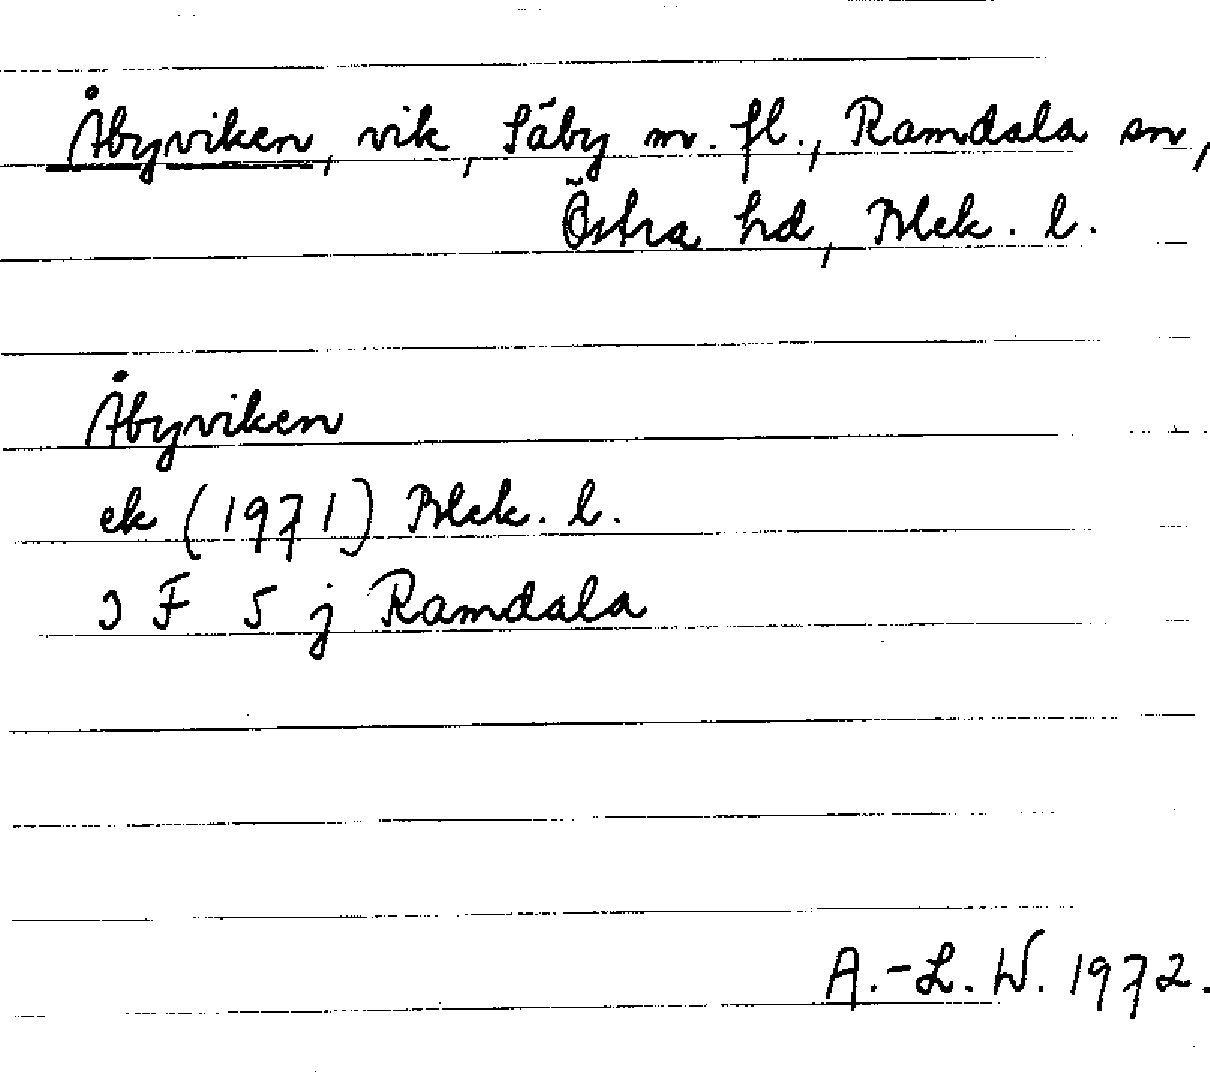 Åbyviken, vik, Säby m. fl., Ramdala sn,
Östra hd, Blek. l.
Åbyviken
ek (1971) Blek. l.
3 F 5 j Ramdala
A.-L. W. 1972.